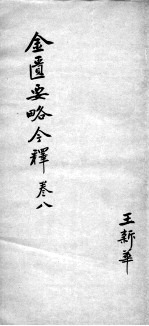 金匱要略今釋 卷八
王新華